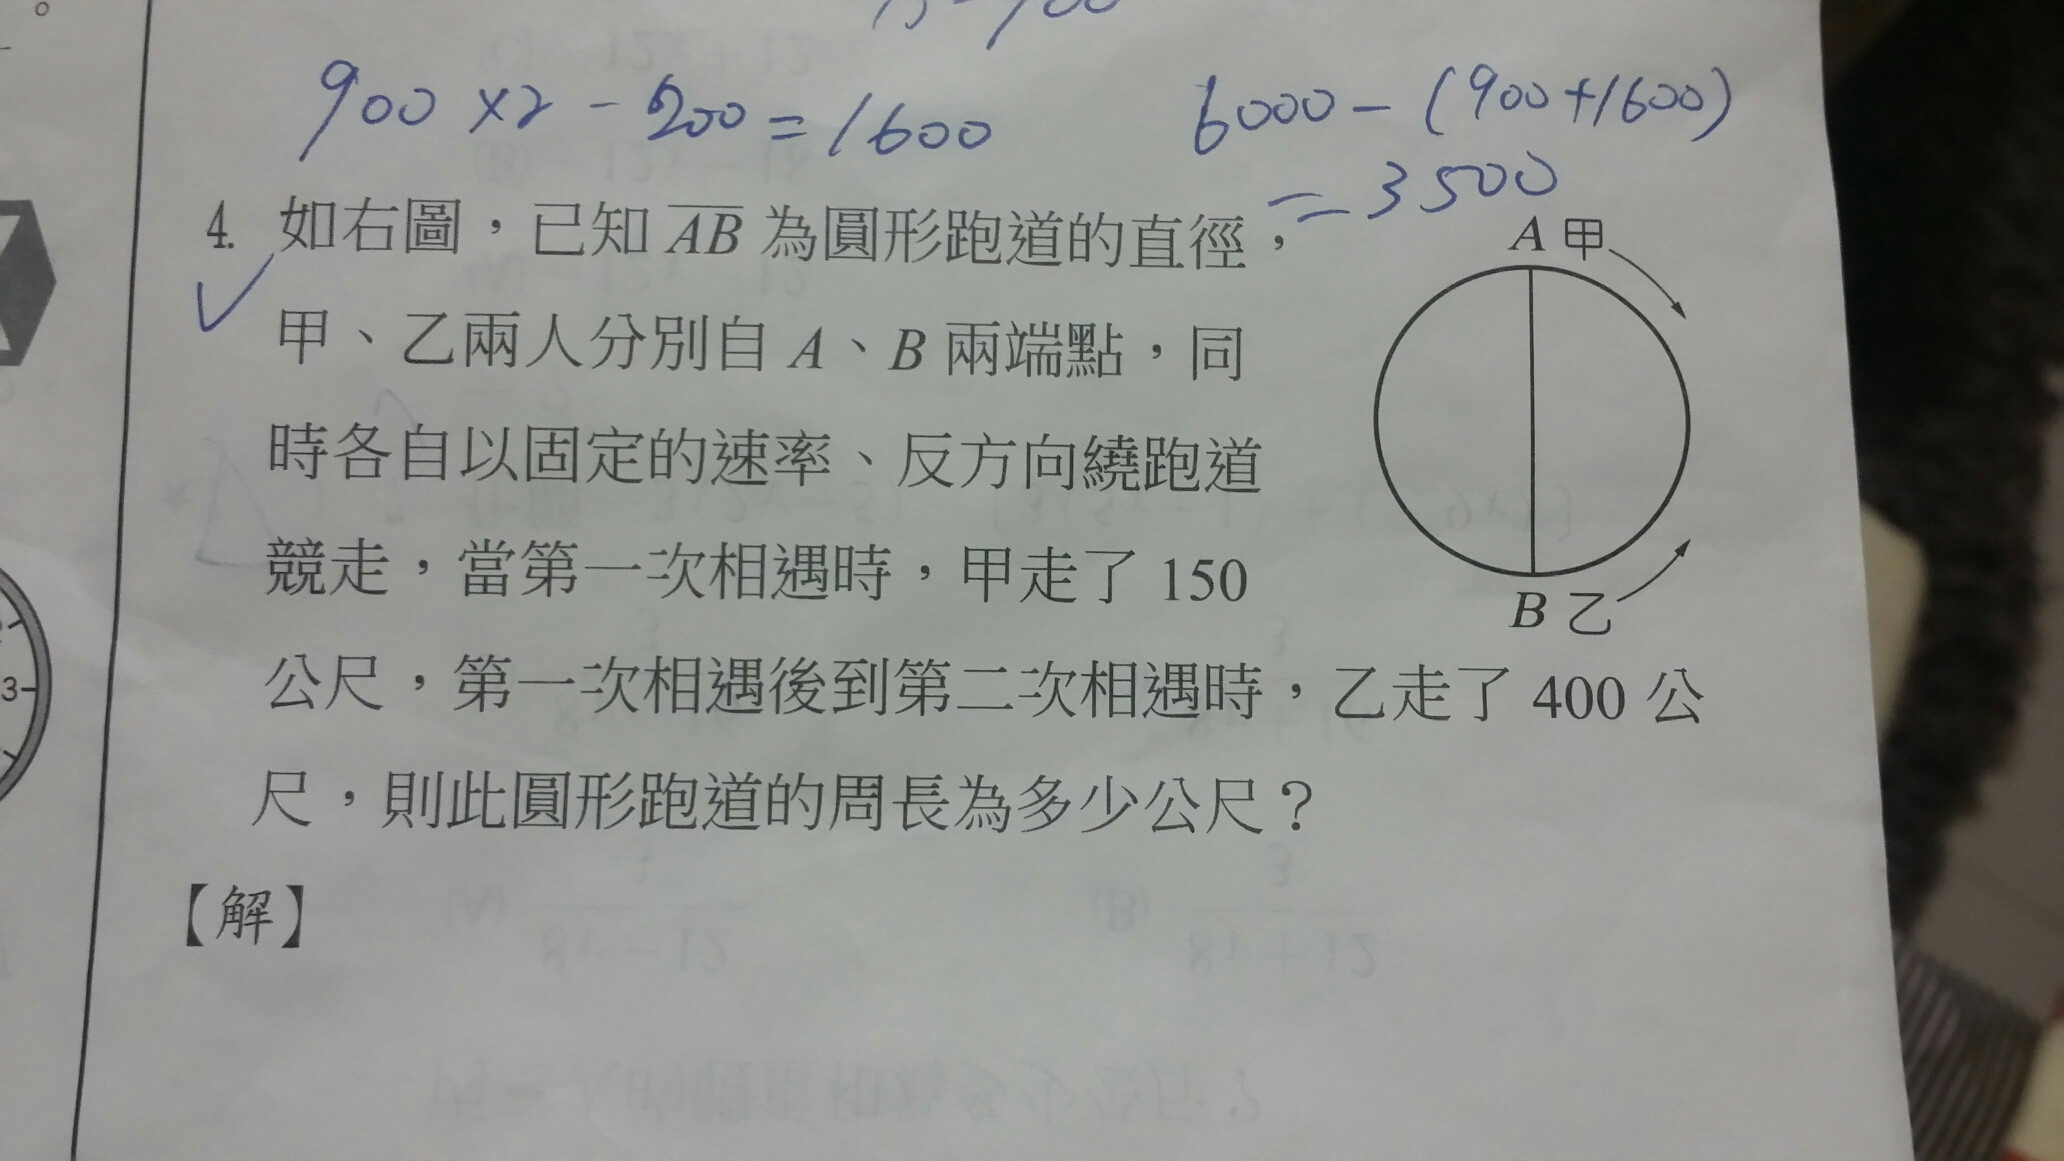 900 × 2 - 200 = 1600
6000 - (900 + 1600)
= 3500
4. 如右圖，已知 AB 為圓形跑道的直徑，
甲、乙兩人分別自 A、B 兩端點，同
時各自以固定的速率、反方向繞跑道
競走，當第一次相遇時，甲走了 150
公尺，第一次相遇後到第二次相遇時，乙走了 400 公
尺，則此圓形跑道的周長為多少公尺？
A 甲
B 乙
【解】
3